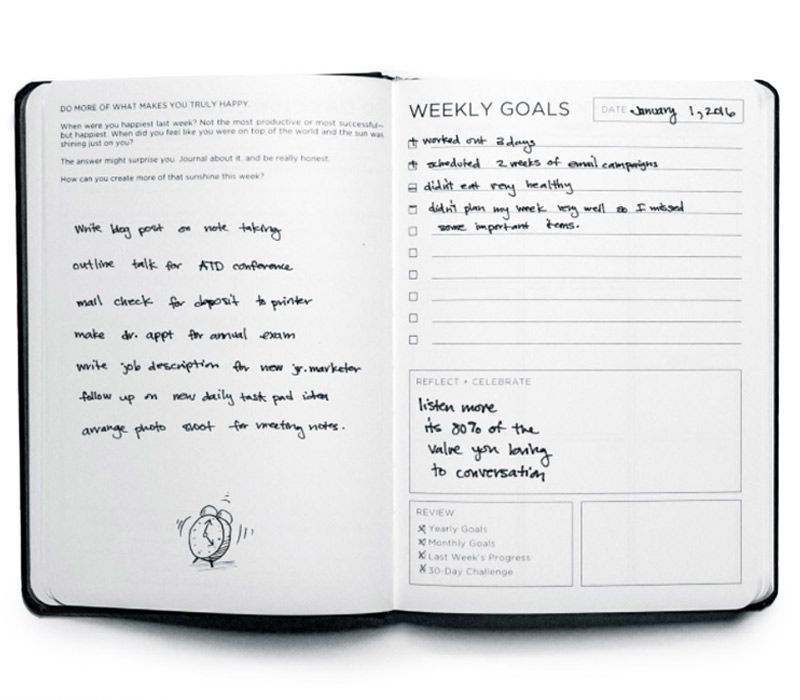 DO MORE OF WHAT MAKES YOU TRULY HAPPY.
When were you happiest last week? Not the most productive or most successful—
but happiest. When did you feel like you were on top of the world and the sun was
shining just on you?
The answer might surprise you. Journal about it, and be really honest.
How can you create more of that sunshine this week?
Write blog post on note taking
outline talk for ATD conference
mail check for deposit to printer
make dr. appt for annual exam
write job description for new jr. marketer
follow up on new daily task pad idea
arrange photo shoot for meeting notes.
WEEKLY GOALS
DATE January 1, 2016
+ worked out 3 days
+ scheduled 2 weeks of email campaigns
- didn't eat very healthy
- didn't plan my week very well so I missed
some important items.
REFLECT + CELEBRATE
listen more
its 80% of the
value you bring
to conversation
REVIEW
x Yearly Goals
x Monthly Goals
x Last Week's Progress
x 30-Day Challenge